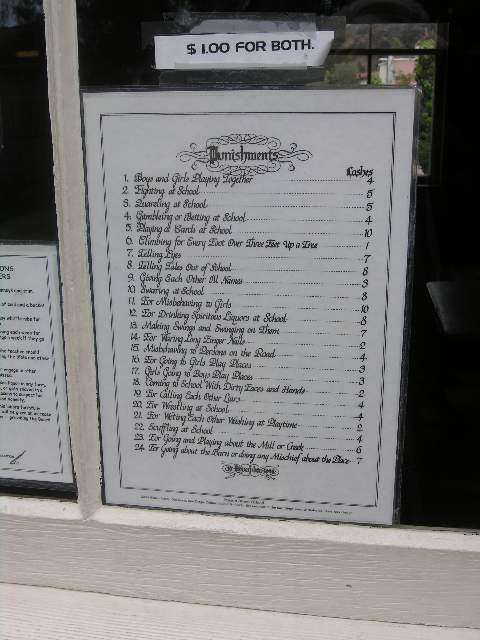 $ 1.00 FOR BOTH.
Punishments
Lashes
1. Boys and Girls Playing Together 4
2. Fighting at School 5
3. Quareling at School 5
4. Gambleing or Betting at School 4
5. Playing at Cards at School 10
6. Climbing for Every Foot Over Three Feet Up a Tree 1
7. Telling Lyes 7
8. Telling Tales Out of School 8
9. Giving Each Other Ill Names 3
10. Swaring at School 8
11. For Misbehaving to Girls 10
12. For Drinking Spiritous Liquors at School 8
13. Making Swings and Swinging on Them 7
14. For Waring Long Finger Nails 2
15. Misbehaving to Persons on the Road 4
16. For Going to Girls Play Places 3
17. Girls Going to Boys Play Places 3
18. Coming to School With Dirty Faces and Hands 2
19. For Calling Each Other Liars 4
20. For Wrestling at School 4
21. For Weting Each Other Washing at Playtime 2
22. Scuffling at School 4
23. For Going and Playing about the Mill or Creek 6
24. For Going about the Barn or doing any Mischief about the Place 7